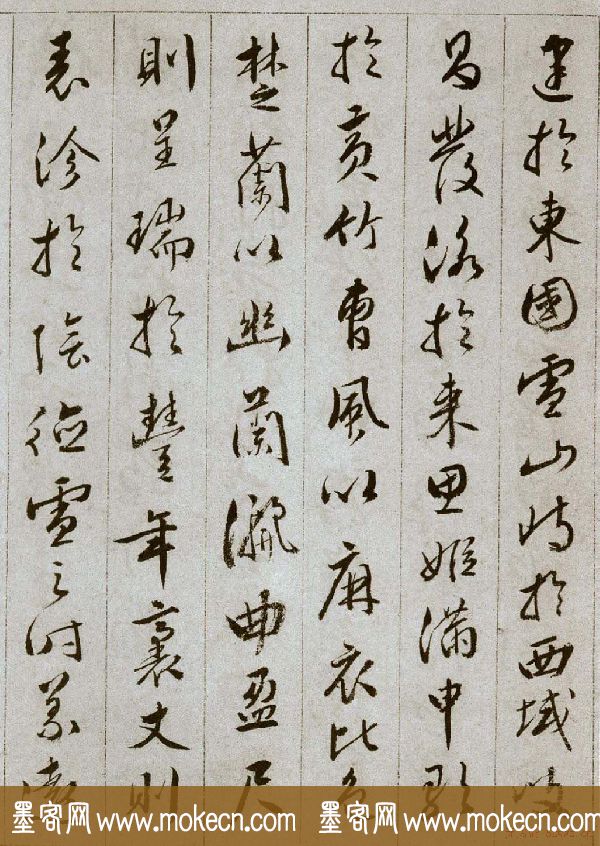 建於東國雪山峙於西域岐
昌發詠於來思姬滿申歌
於黃竹曹風以麻衣比色
楚蘭以幽蘭儷曲盈尺
則呈瑞於豐年袤丈則
表沴於陰德雪之時義遠
墨客网 www.mokecn.com 墨客网 www.mokecn.com